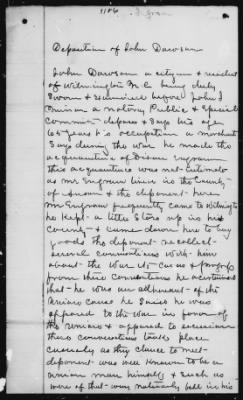 1186
Deposition of John Dawson
John Dawson a citizen & resident
of Wilmington N.C. being duly
sworn & examined before John J
a notary Public & Special
Commissr deposes & says his age
65 years & occupation a merchant
Says during the war he made the
acquaintance of
this acquaintance was not intimate
as Mr lives in the County
of & the deponent here
Mr frequently came to Wilmington
he kept a little store up in his
County & came down here to buy
goods the deponent recollects
several conversations with him
about the war its cause & progress
from these conversations he ascertained
that he was an adherent of the
Union cause he said he was
opposed to the war in favor of
the Union & opposed to secession
these conversations took place
casually as they chance to meet
deponent was well known to be a
union man himself & such as
were of that way naturally fell in his